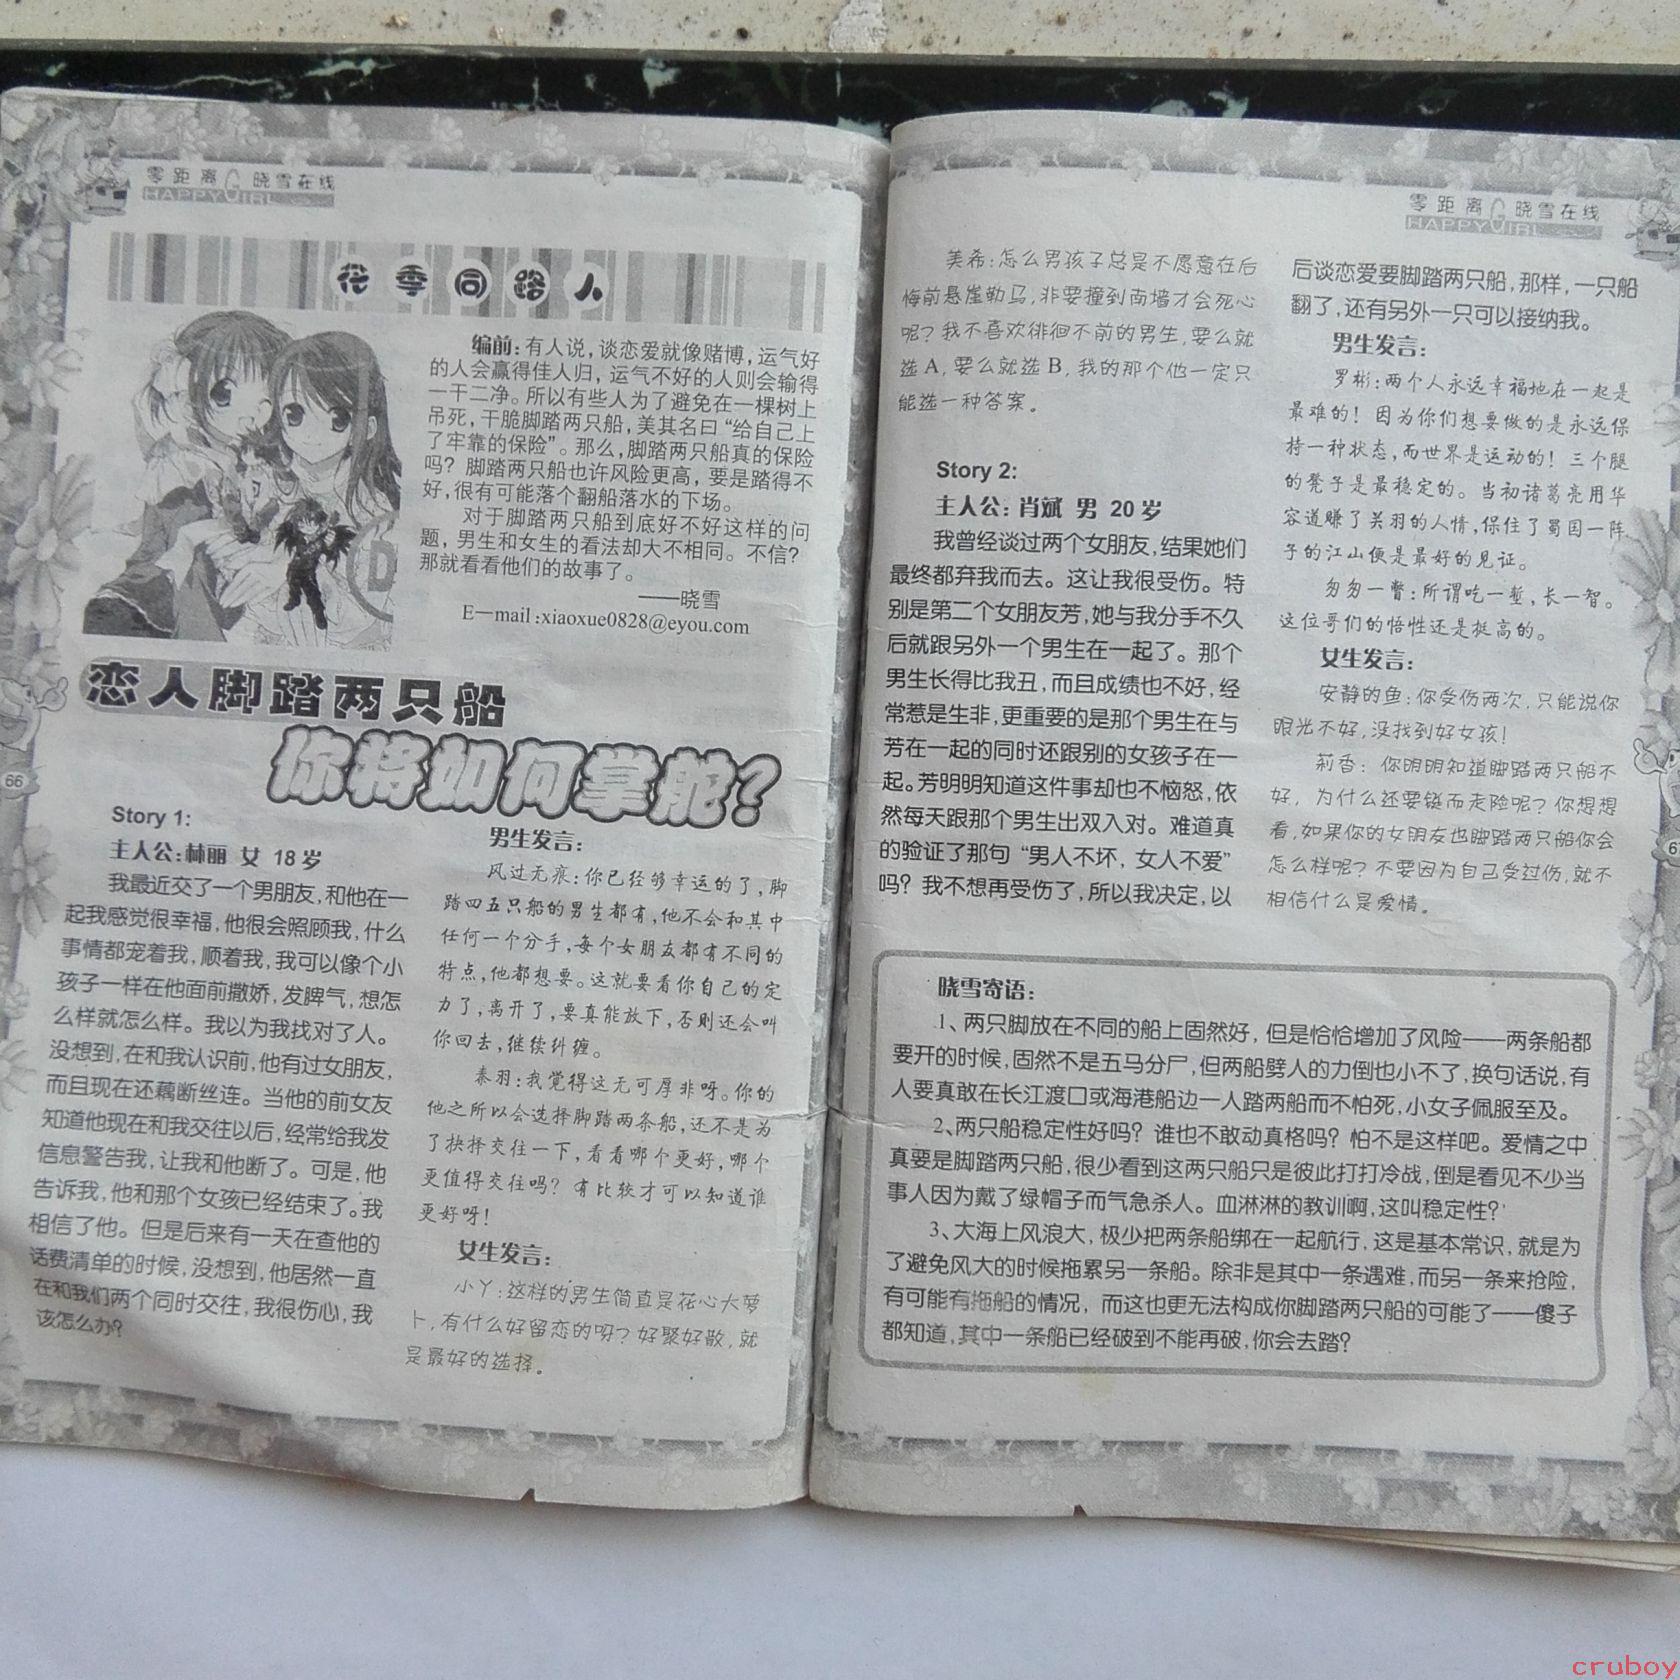 零距离 晓雪在线
HAPPY GIRL
花季同路人
编前：有人说，谈恋爱就像赌博，运气好
的人会赢得佳人归，运气不好的人则会输得
一干二净。所以有些人为了避免在一棵树上
吊死，干脆脚踏两只船，美其名曰“给自己上
了牢靠的保险”。那么，脚踏两只船真的保险
吗？脚踏两只船也许风险更高，要是踏得不
好，很有可能落个翻船落水的下场。
对于脚踏两只船到底好不好这样的问
题，男生和女生的看法却大不相同。不信？
那就看看他们的故事了。
——晓雪
E—mail:xiaoxue0828@eyou.com
恋人脚踏两只船
你将如何掌舵？
66
Story 1:
主人公：林丽 女 18岁
我最近交了一个男朋友，和他在一
起我感觉很幸福，他很会照顾我，什么
事情都宠着我，顺着我，我可以像个小
孩子一样在他面前撒娇，发脾气，想怎
么样就怎么样。我以为我找对了人。
没想到，在和我认识前，他有过女朋友，
而且现在还藕断丝连。当他的前女友
知道他现在和我交往以后，经常给我发
信息警告我，让我和他断了。可是，他
告诉我，他和那个女孩已经结束了。我
相信了他。但是后来有一天在查他的
话费清单的时候，没想到，他居然一直
在和我们两个同时交往，我很伤心，我
该怎么办？
男生发言：
风过无痕：你已经够幸运的了，脚
踏四五只船的男生都有，他不会和其中
任何一个分手，每个女朋友都有不同的
特点，他都想要。这就要看你自己的定
力了，离开了，要真能放下，否则还会叫
你回去，继续纠缠。
秦羽：我觉得这无可厚非呀。你的
他之所以会选择脚踏两条船，还不是为
了抉择交往一下，看看哪个更好，哪个
更值得交往吗？有比较才可以知道谁
更好呀！
女生发言：
小丫：这样的男生简直是花心大萝
卜，有什么好留恋的呀？好聚好散，就
是最好的选择。
零距离 晓雪在线
HAPPY GIRL
美希：怎么男孩子总是不愿意在后
悔前悬崖勒马，非要撞到南墙才会死心
呢？我不喜欢徘徊不前的男生，要么就
选A，要么就选B，我的那个他一定只
能选一种答案。
Story 2:
主人公：肖斌 男 20岁
我曾经谈过两个女朋友，结果她们
最终都弃我而去。这让我很受伤。特
别是第二个女朋友芳，她与我分手不久
后就跟另外一个男生在一起了。那个
男生长得比我丑，而且成绩也不好，经
常惹是生非，更重要的是那个男生在与
芳在一起的同时还跟别的女孩子在一
起。芳明明知道这件事却也不恼怒，依
然每天跟那个男生出双入对。难道真
的验证了那句“男人不坏，女人不爱”
吗？我不想再受伤了，所以我决定，以
后谈恋爱要脚踏两只船，那样，一只船
翻了，还有另外一只可以接纳我。
男生发言：
罗彬：两个人永远幸福地在一起是
最难的！因为你们想要做的是永远保
持一种状态，而世界是运动的！三个腿
的凳子是最稳定的。当初诸葛亮用华
容道赚了关羽的人情，保住了蜀国一阵
子的江山便是最好的见证。
匆匆一瞥：所谓吃一堑，长一智。
这位哥们的悟性还是挺高的。
女生发言：
安静的鱼：你受伤两次，只能说你
眼光不好，没找到好女孩！
莉香：你明明知道脚踏两只船不
好，为什么还要铤而走险呢？你想想
看，如果你的女朋友也脚踏两只船你会
怎么样呢？不要因为自己受过伤，就不
相信什么是爱情。
晓雪寄语：
1、两只脚放在不同的船上固然好，但是恰恰增加了风险——两条船都
要开的时候，固然不是五马分尸，但两船劈人的力倒也小不了，换句话说，有
人要真敢在长江渡口或海港船边一人踏两船而不怕死，小女子佩服至及。
2、两只船稳定性好吗？谁也不敢动真格吗？怕不是这样吧。爱情之中
真要是脚踏两只船，很少看到这两只船只是彼此打打冷战，倒是看见不少当
事人因为戴了绿帽子而气急杀人。血淋淋的教训啊，这叫稳定性？
3、大海上风浪大，极少把两条船绑在一起航行，这是基本常识，就是为
了避免风大的时候拖累另一条船。除非是其中一条遇难，而另一条来抢险，
有可能有拖船的情况，而这也更无法构成你脚踏两只船的可能了——傻子
都知道，其中一条船已经破到不能再破，你会去踏？
cruboy